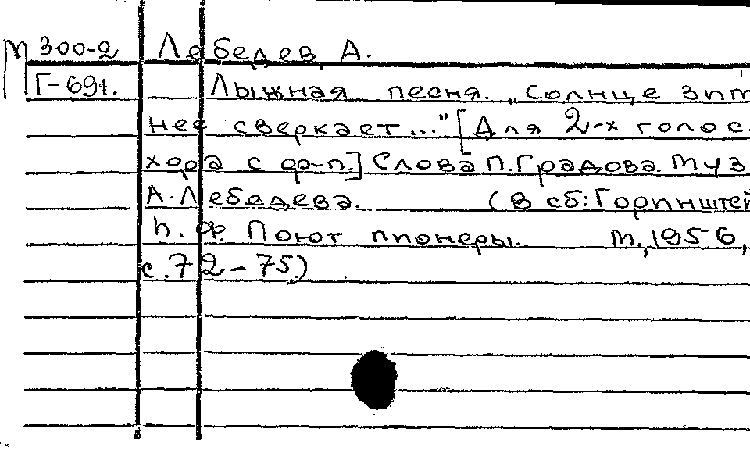 М 300-2 Лебедев, А.
Г-691. Лыжная песня. „Солнце зим
нее сверкает..." [Для 2-х голос.
хора с ф-п.] Слова П. Градова. Муз
А. Лебедева. (В сб: Горинштей
Поют пионеры. М., 1956,
с. 72-75)